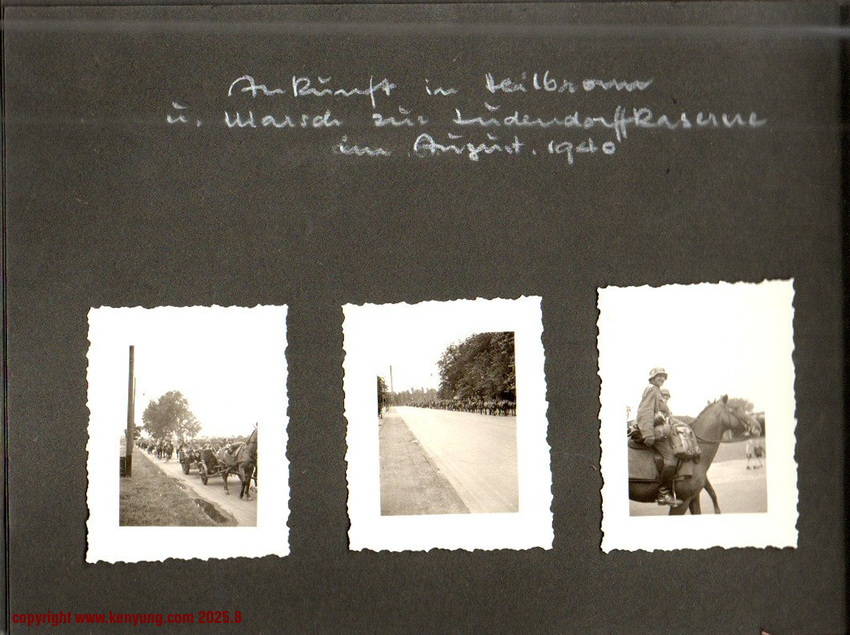 Ankunft in Heilbronn
u. Marsch zur Ludendorffkaserne
im August. 1940
copyright www.kenyung.com 2025.8